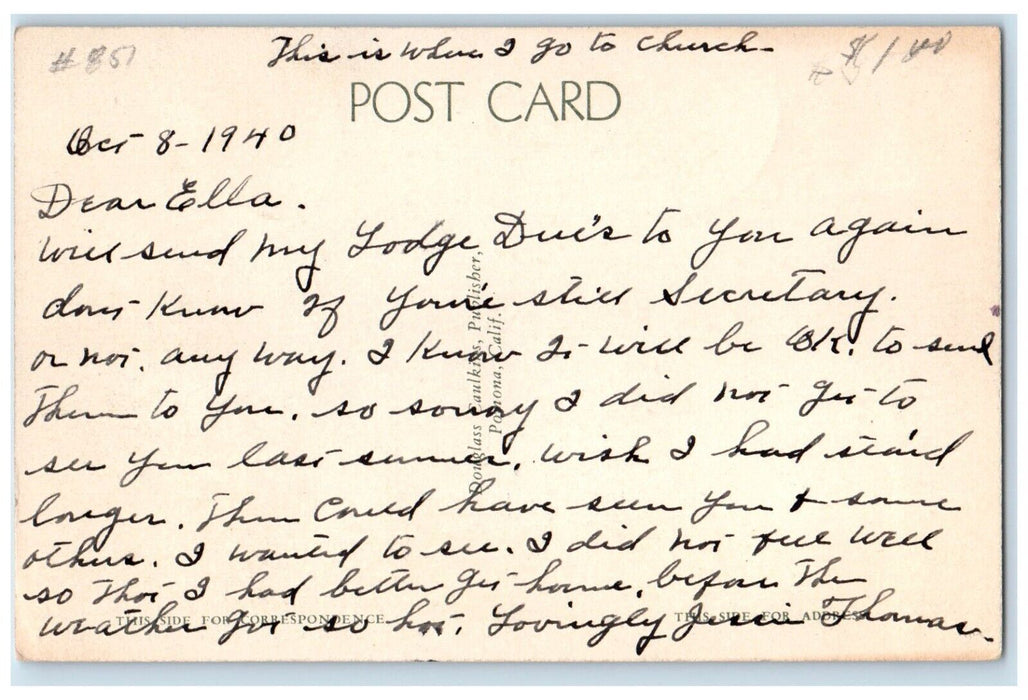 #851
This is where I go to church-
$1 00
POST CARD
Oct 8-1940
Dear Ella.
will send my Lodge Due's to you again
dont Know If You're still Secretary.
or not, any way. I Know It will be OK. to send
Them to you. so sorry I did not get to
see you last summer, wish I had staid
longer. Then Could have seen you & some
others. I wanted to see. I did not feel well
so Thot I had better get home, before The
weather got so hot. Lovingly Jessie Thomas-
Douglass Faulkins, Publisher,
Pomona, Calif.
THIS SIDE FOR CORRESPONDENCE
THIS SIDE FOR ADDRESS